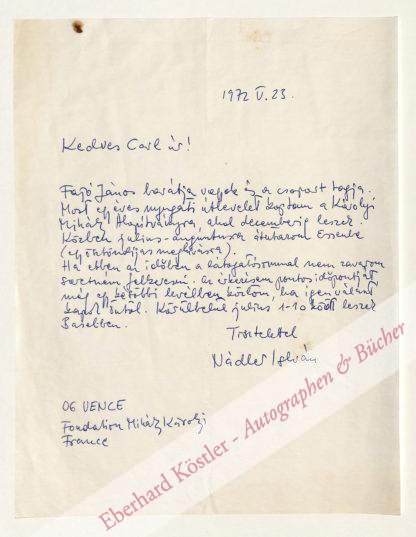 1972 V. 23.
Kedves Carl úr!
Fajó János barátja vagyok és a csoport tagja.
Most egy éves nyugati útlevelet kaptam a Károlyi
Mihály Alapítványra, ahol decemberig leszek.
Közben július-augusztusra átutazom Essenbe
(egy ösztöndíjas meghívásra).
Ha ebben az időben a látogatásommal nem zavarom
szeretném felkeresni. az érkezésem pontos időpontját
még egy későbbi levélben közlöm, ha igen választ
kapok Öntől. Körülbelül július 1-10 között leszek
Baselben.
Tisztelettel
Nádler István
06 VENCE
Fondation Mihály Károlyi
France
Eberhard Köstler - Autographen & Bücher